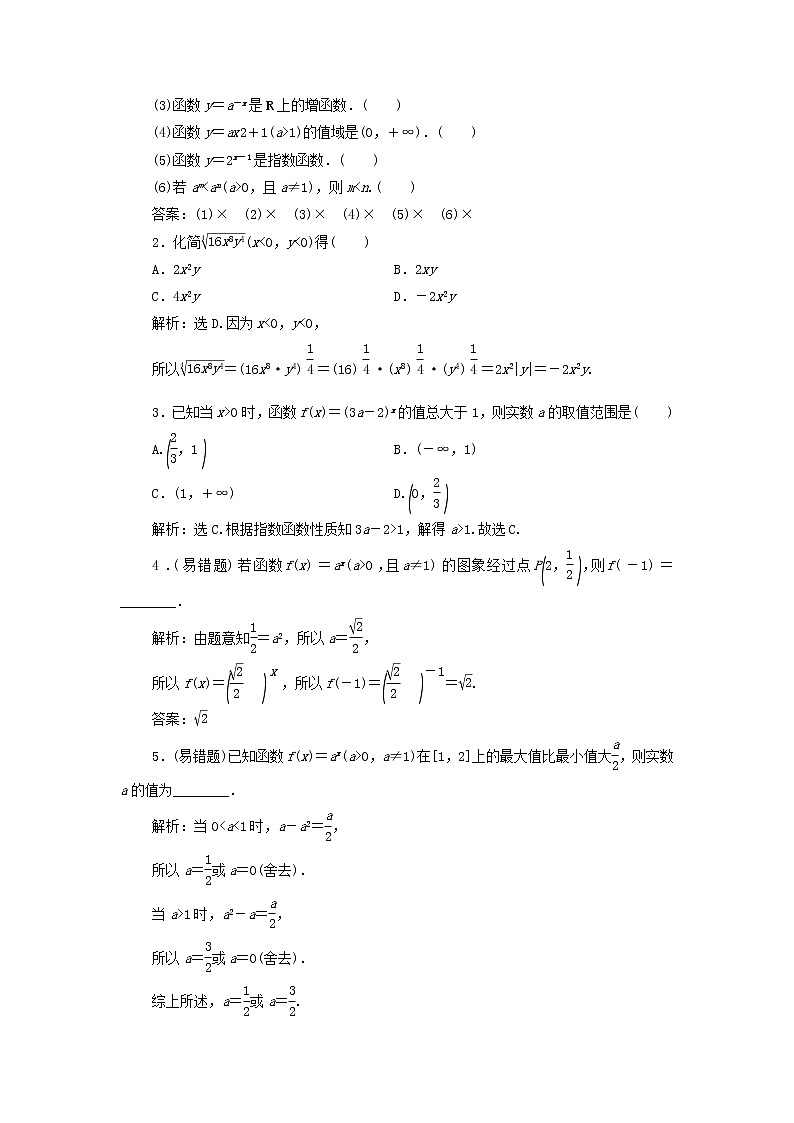 (3)函数 y＝a⁻ˣ是 R 上的增函数．(　　)
(4)函数 y＝ax2＋1(a>1)的值域是(0，＋∞)．(　　)
(5)函数 y＝2ˣ⁻¹是指数函数．(　　)
(6)若 aᵐ<aⁿ(a>0，且 a≠1)，则 m<n.(　　)
答案：(1)×　(2)×　(3)×　(4)×　(5)×　(6)×
2．化简∜(16x⁸y⁴)(x<0，y<0)得(　　)
A．2x²y　　B．2xy
C．4x²y　　D．－2x²y
解析：选 D.因为 x<0，y<0，
所以∜(16x⁸y⁴)＝(16x⁸·y⁴)^(1/4)＝(16)^(1/4)·(x⁸)^(1/4)·(y⁴)^(1/4)＝2x²|y|＝－2x²y.
3．已知当 x>0 时，函数 f(x)＝(3a－2)ˣ的值总大于 1，则实数 a 的取值范围是(　　)
A.(2/3，1)　　B．(－∞，1)
C．(1，＋∞)　　D.(0，2/3)
解析：选 C.根据指数函数性质知 3a－2>1，解得 a>1.故选 C.
4．(易错题)若函数 f(x)＝aˣ(a>0，且 a≠1)的图象经过点 P(2，1/2)，则 f(－1)＝
________.
解析：由题意知1/2＝a²，所以 a＝√2/2，
所以 f(x)＝(√2/2)^x，所以 f(－1)＝(√2/2)^－1＝√2.
答案：√2
5．(易错题)已知函数 f(x)＝aˣ(a>0，a≠1)在[1，2]上的最大值比最小值大a/2，则实数
a 的值为________.
解析：当 0<a<1 时，a－a²＝a/2，
所以 a＝1/2或 a＝0(舍去)．
当 a>1 时，a²－a＝a/2，
所以 a＝3/2或 a＝0(舍去)．
综上所述，a＝1/2或 a＝3/2.